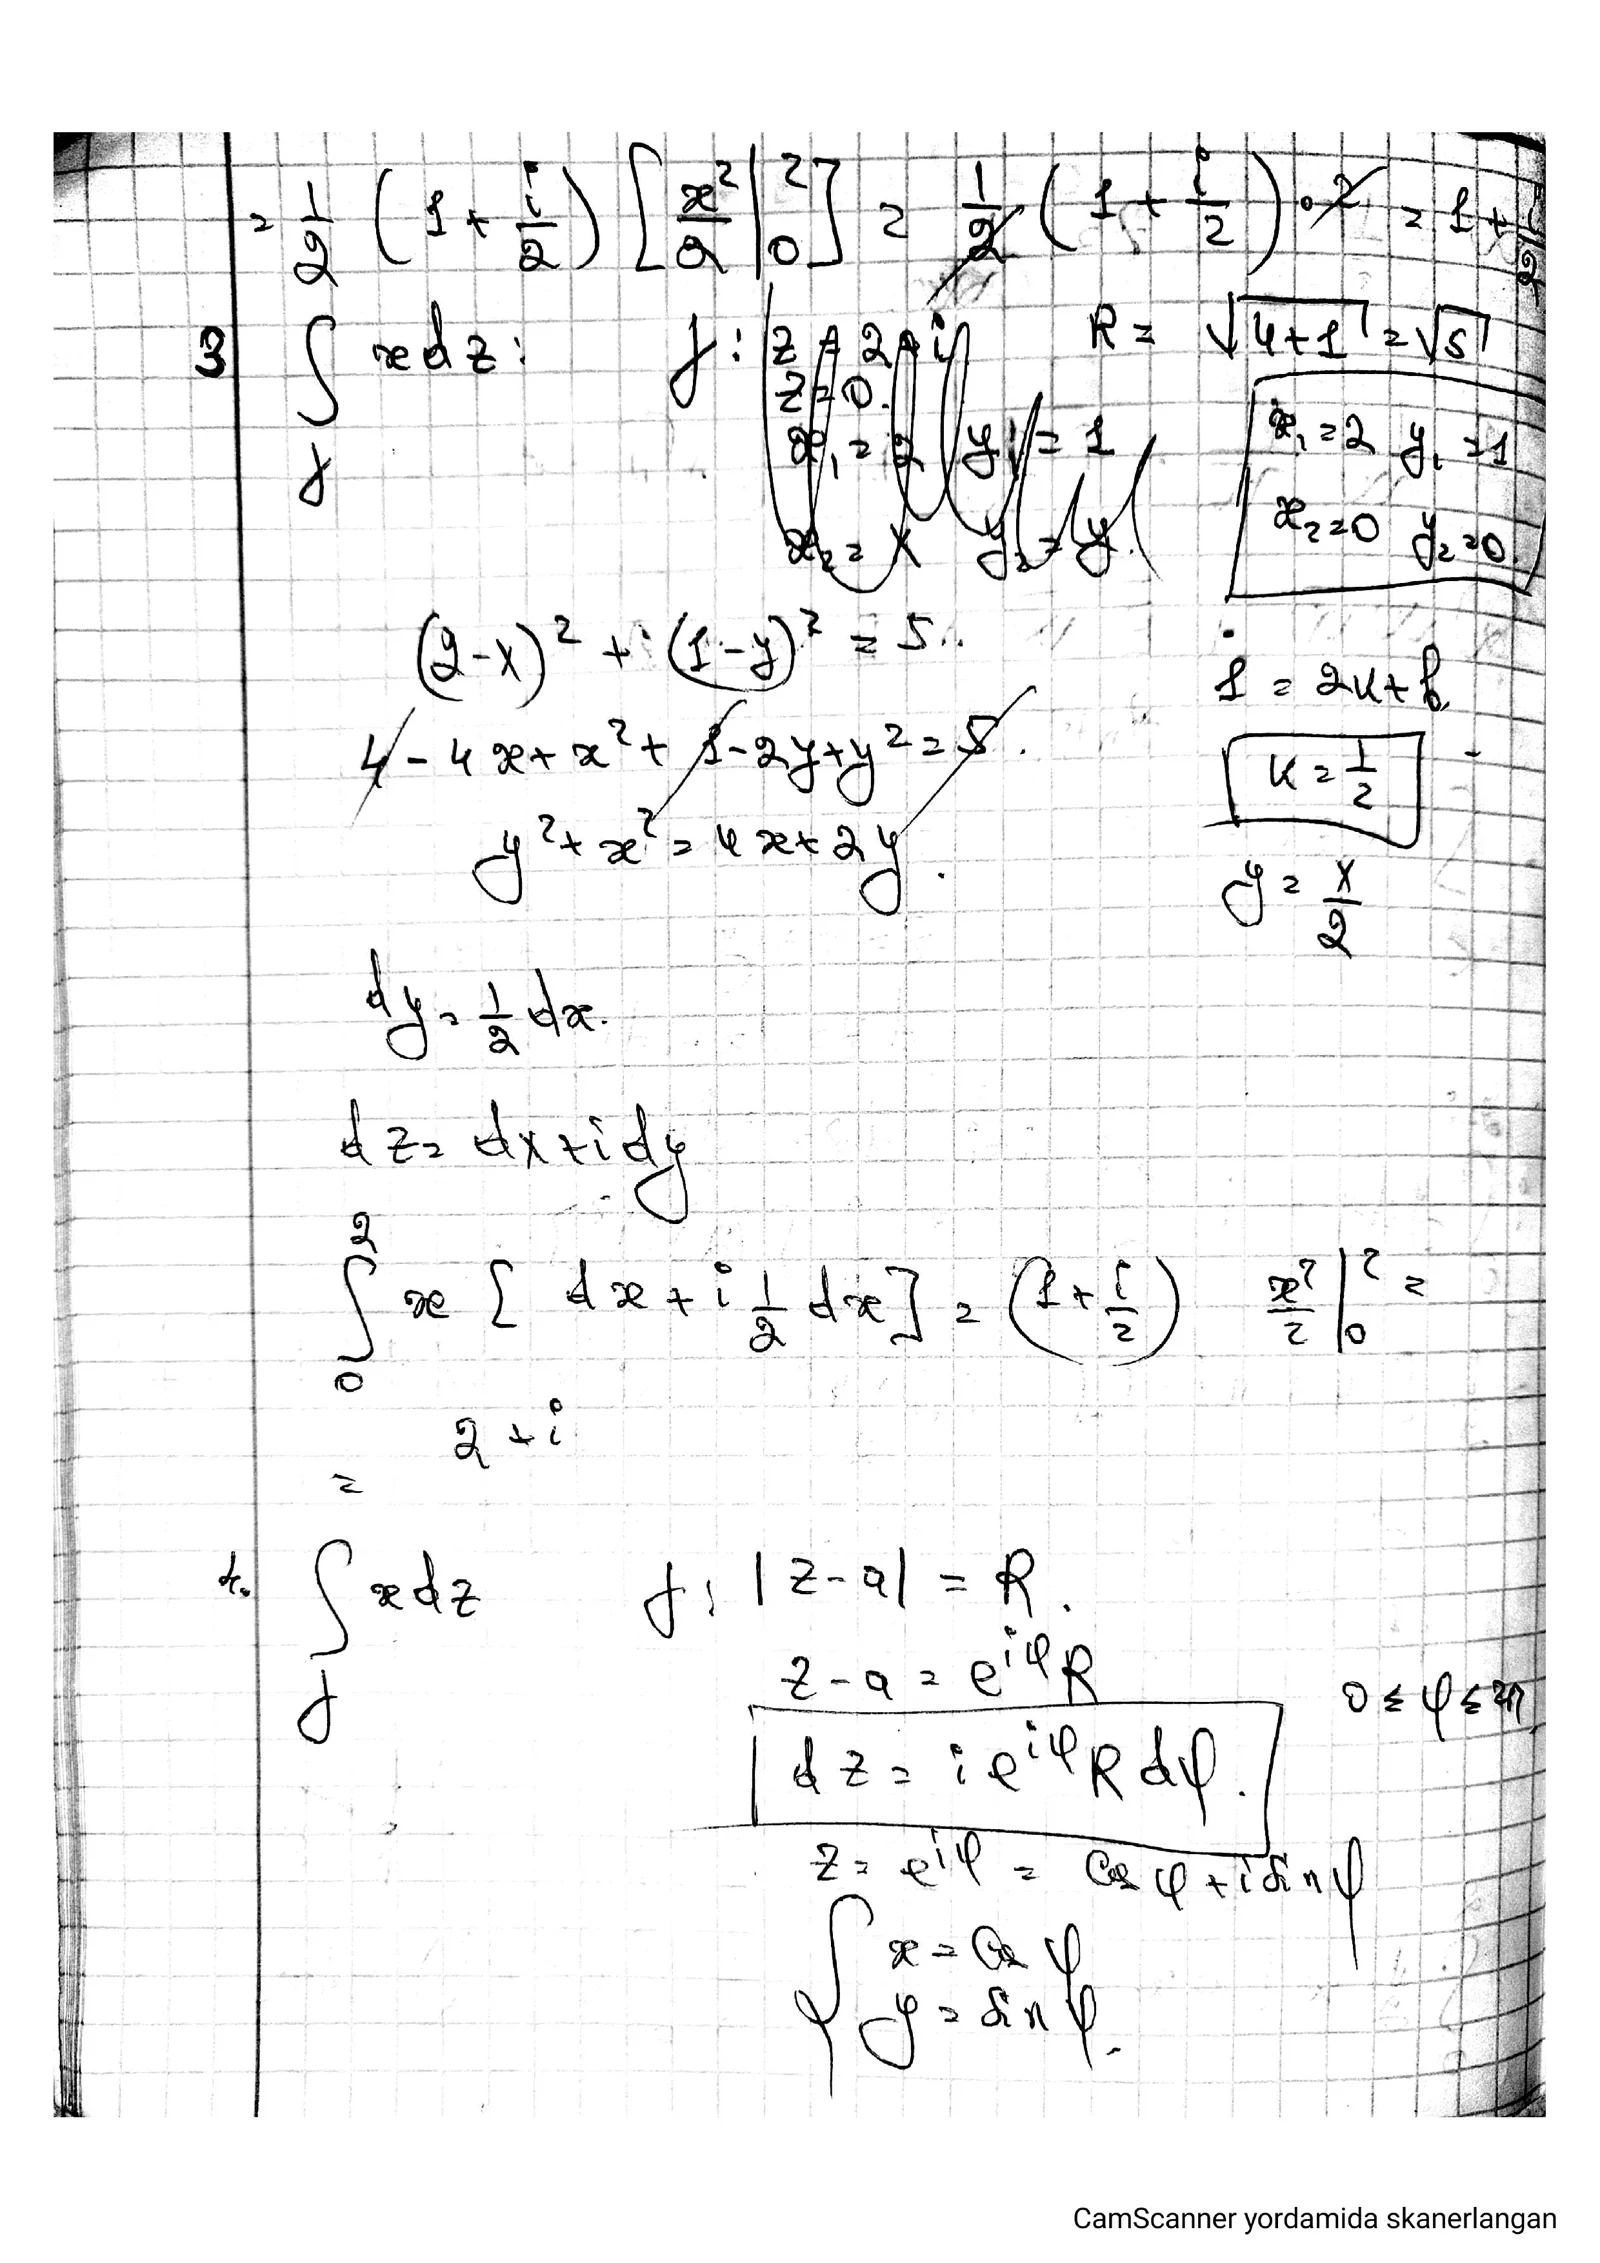 = 1/2 (1 + i/2) [x²/2 |₀²] = 1/2 (1 + i/2) · 2 = 1 + i/2
3 ∫_γ x dz : γ: z = 2 + i R = √(4+1) = √5
z = 0.
x₁ = 2 y₁ = 1 x₁ = 2 y₁ = 1
x₂ = x y₂ = y. x₂ = 0 y₂ = 0.
(2 - x)² + (1 - y)² = 5.. 1 = 2k + b.
4 - 4x + x² + 1 - 2y + y² = 5. k = 1/2
y² + x² = 4x + 2y. y = x/2
dy = 1/2 dx.
dz = dx + i dy
∫₀² x [ dx + i 1/2 dx ] = (1 + i/2) x²/2 |₀² =
= 2 + i
4. ∫_γ x dz γ: |z - a| = R.
z - a = e^{iφ} R 0 ≤ φ ≤ 2π.
dz = i e^{iφ} R dφ.
z = e^{iφ} = cos φ + i sin φ
x = cos φ
y = sin φ.
CamScanner yordamida skanerlangan